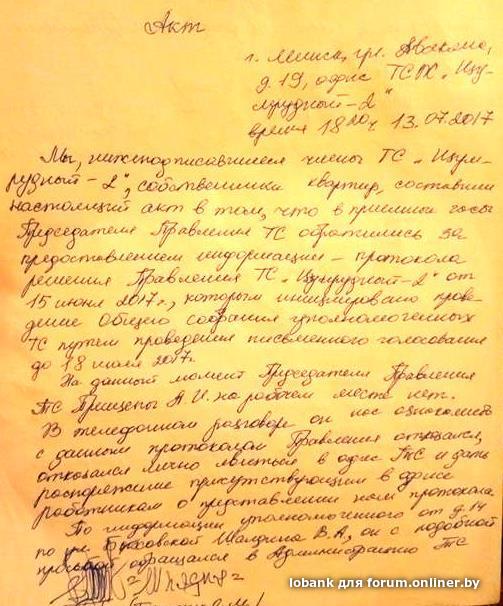 Акт
г. Минск, ул. Авакяна,
д. 19, офис ТСЖ „Изу-
мрудный-2"
время 18 20 ч 13.07.2017
Мы, нижеподписавшиеся члены ТС „Изум-
рудный-2", собственники квартир, составили
настоящий акт в том, что в приемные часы
Председателя Правления ТС обратились за
предоставлением информации – протокола
решения Правления ТС „Изумрудный-2" от
15 июня 2017г., которым инициировано прове-
дение Общего собрания уполномоченных
ТС путем проведения письменного голосования
до 18 июля 2017г.
На данный момент Председателя Правления
ТС Прищепы А.И. на рабочем месте нет.
В телефонном разговоре он нас ознакомить
с данным протоколом Правления отказался,
отказался лично явиться в офис ТС и дать
распоряжение присутствующим в офисе
работникам о предоставлении нам протокола
По информации уполномоченного от д. 14
по ул. В.А, он с подобной
обращался в Администрацию ТС
lobank для forum.onliner.by